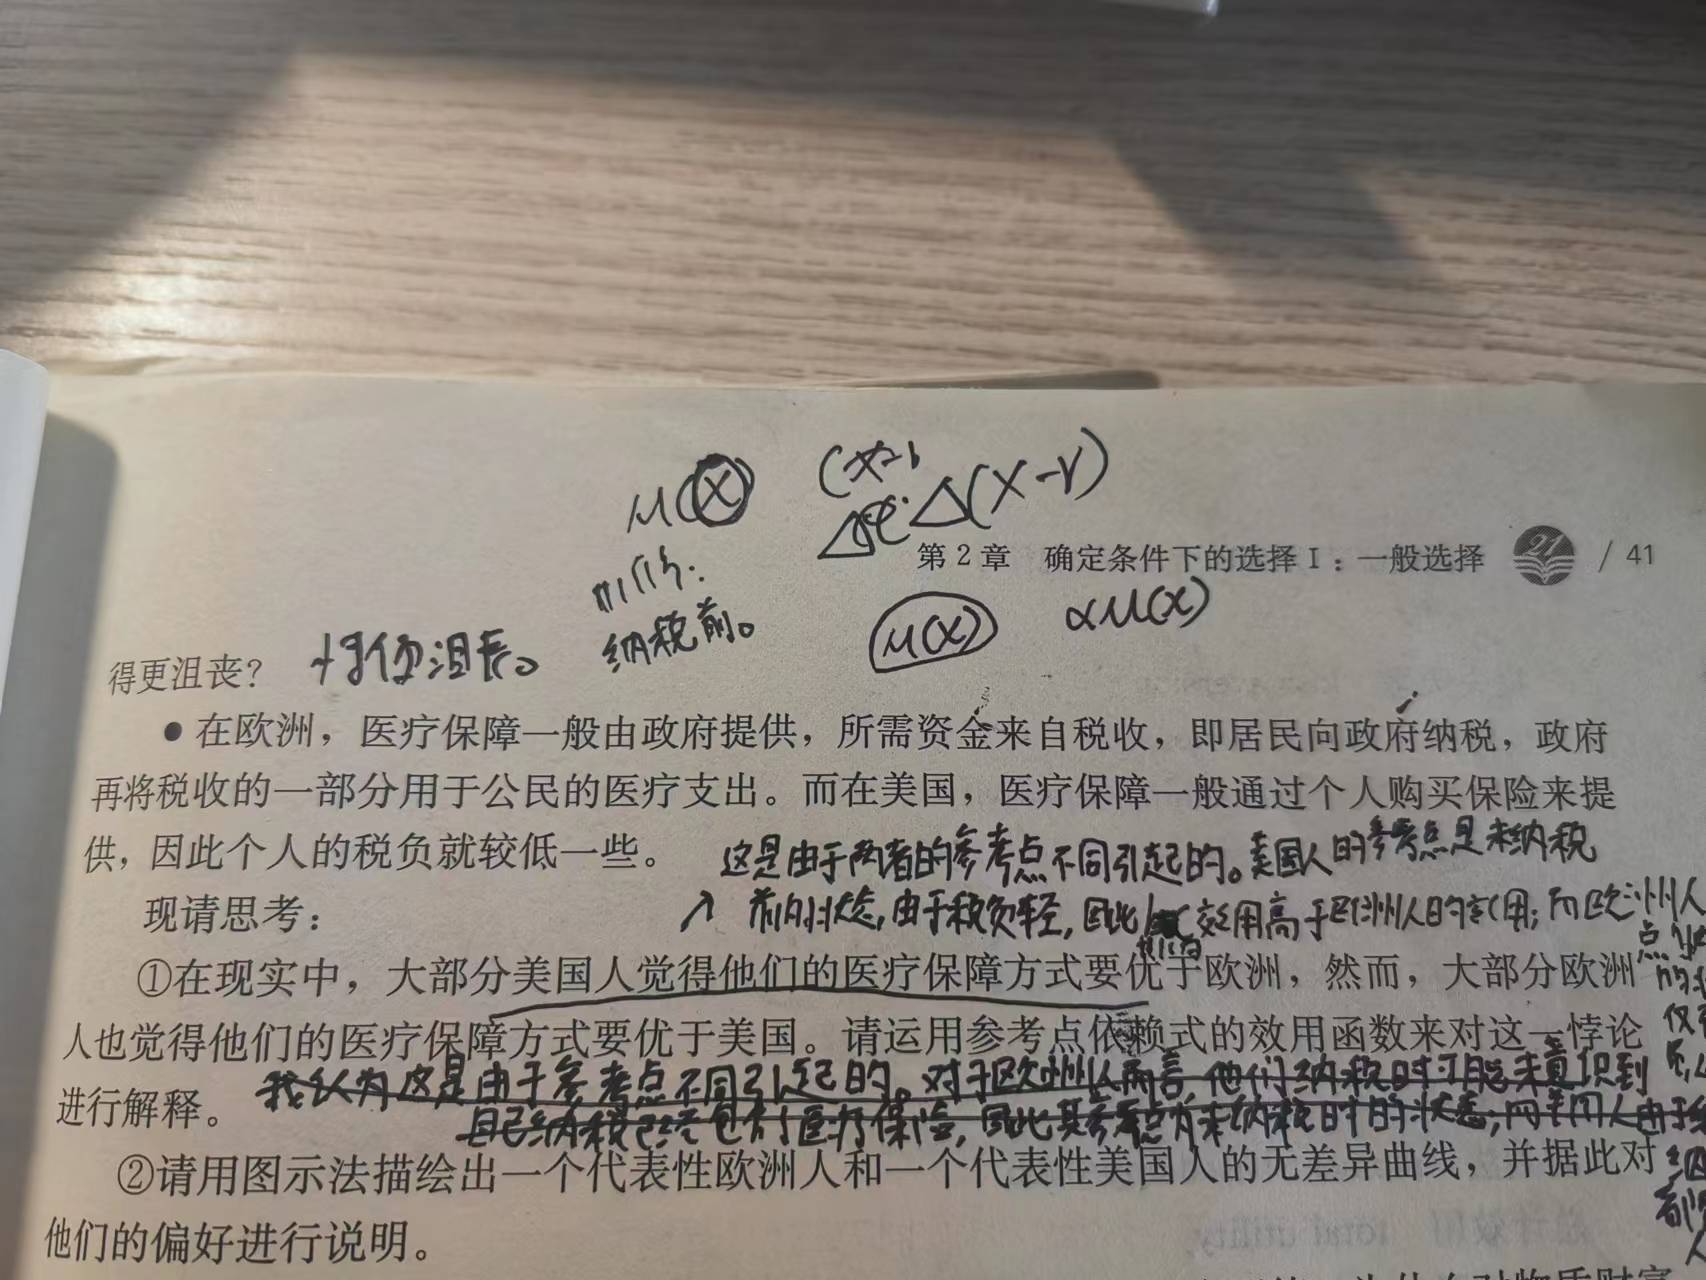 μ(X)
Δ(X-r)
第2章 确定条件下的选择Ⅰ:一般选择 / 41
μ(X) αμ(X)
纳税前。
得更沮丧?
•在欧洲,医疗保障一般由政府提供,所需资金来自税收,即居民向政府纳税,政府
再将税收的一部分用于公民的医疗支出。而在美国,医疗保障一般通过个人购买保险来提
供,因此个人的税负就较低一些。
这是由于两者的参考点不同引起的。美国人的参考点是未纳税
现请思考:
前的状态,由于税负轻,因此 效用高于欧洲人的效用;而欧洲人
①在现实中,大部分美国人觉得他们的医疗保障方式要优于欧洲,然而,大部分欧洲
人也觉得他们的医疗保障方式要优于美国。请运用参考点依赖式的效用函数来对这一悖论
进行解释。
我认为这是由于参考点不同引起的。对于欧洲人而言,他们纳税时可能未意识到
自己纳税已经包括医疗保险,因此其参考点为未纳税时的状态;
②请用图示法描绘出一个代表性欧洲人和一个代表性美国人的无差异曲线,并据此对
他们的偏好进行说明。